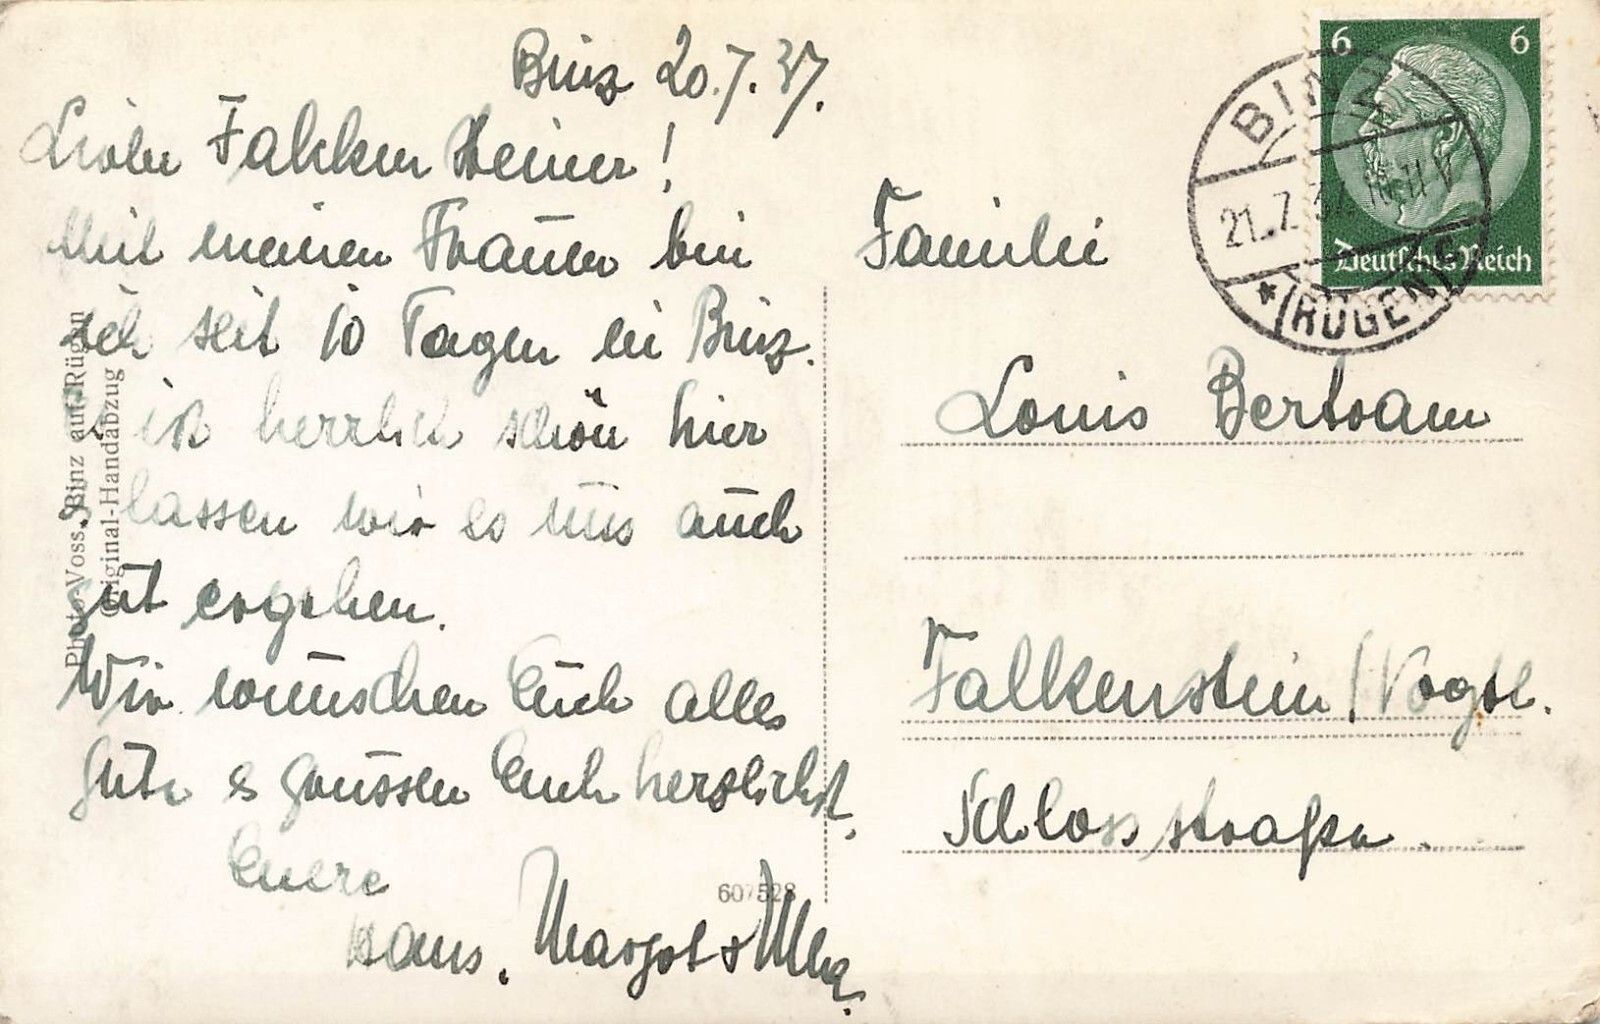 Binz 20.7.37.
Liebe Falkensteiner!
Mit meinen Frauen bin
ich seit 10 Tagen in Binz.
Es ist herrlich schön hier
u. lassen wir es uns auch
gut ergehen.
Wir wünschen Euch alles
Gute & grüssen Euch herzlichst,
Euere
Hans, Margot &
Familie
Louis Bertram
Falkenstein/Vogtl.
Schlossstraße.
6 6
Deutsches Reich
BINZ
21.7.37. 10-11 V
* (RÜGEN)
Photo Voss, Binz auf Rügen
Original-Handabzug
607528